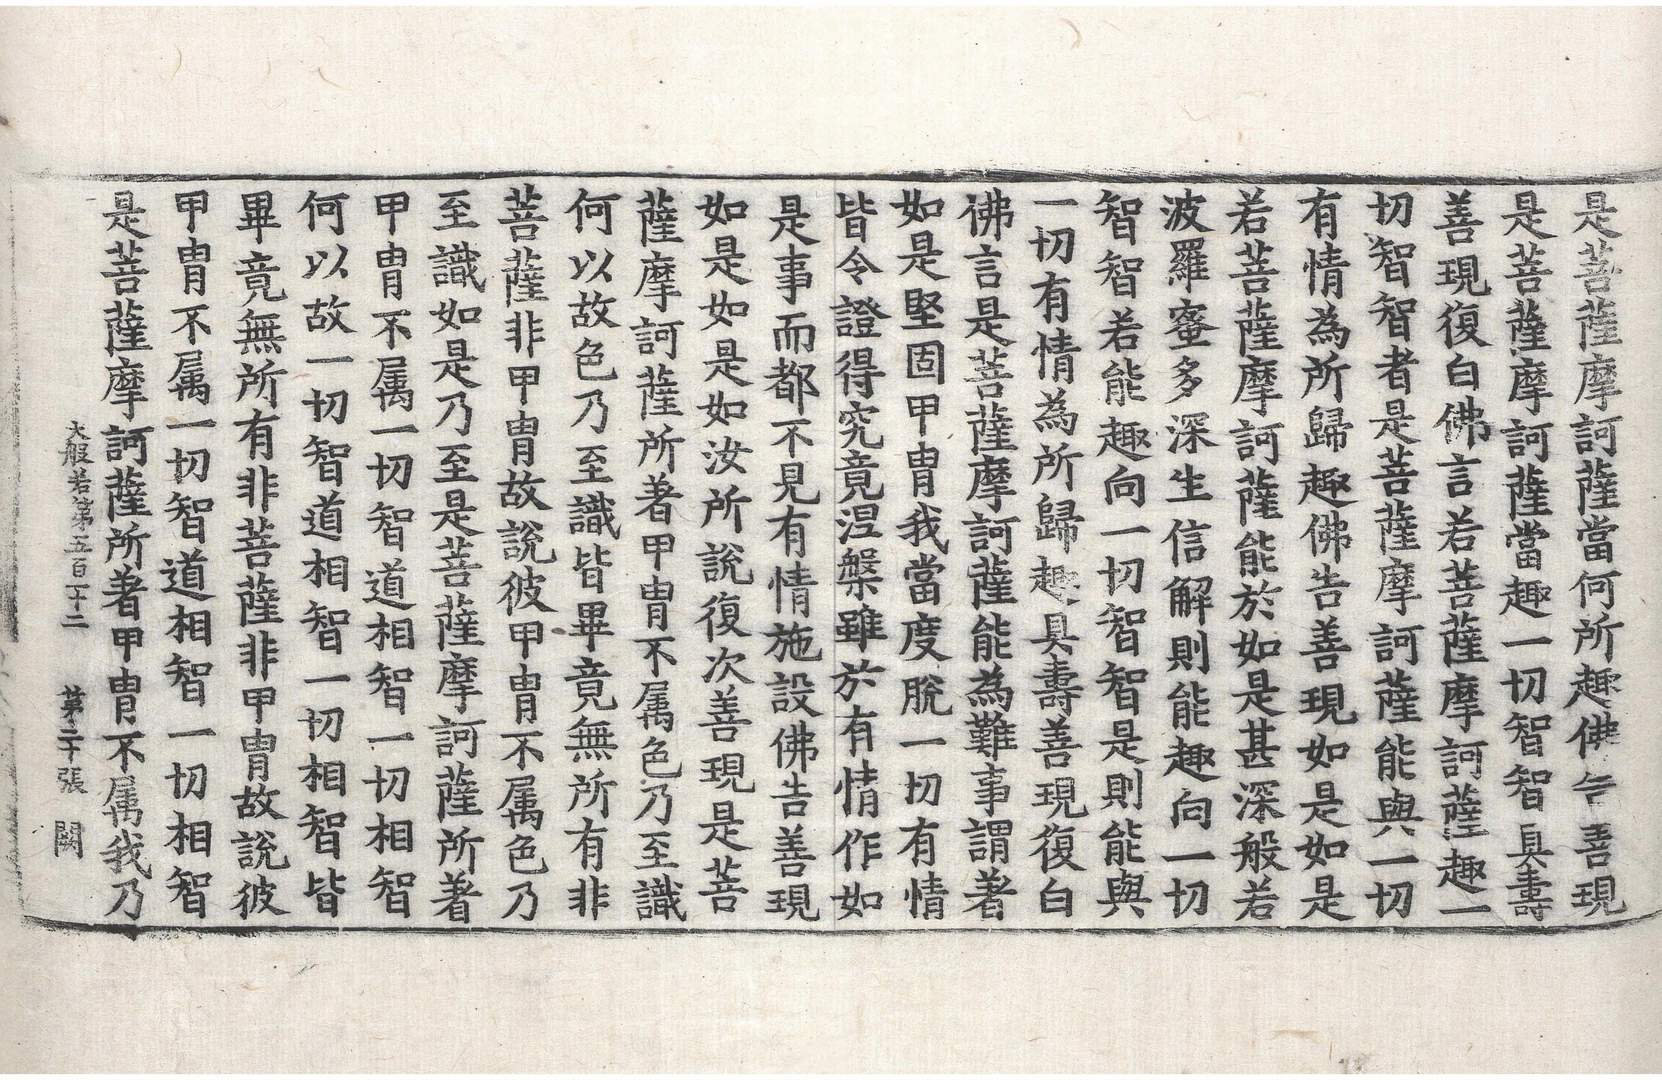 是菩薩摩訶薩當何所趣佛告善現
是菩薩摩訶薩當趣一切智智具壽
善現復白佛言若菩薩摩訶薩趣一
切智智者是菩薩摩訶薩能與一切
有情為所歸趣佛告善現如是如是
若菩薩摩訶薩能於如是甚深般若
波羅蜜多深生信解則能趣向一切
智智若能趣向一切智智是則能與
一切有情為所歸趣具壽善現復白
佛言是菩薩摩訶薩能為難事謂著
如是堅固甲冑我當度脫一切有情
皆令證得究竟涅槃雖於有情作如
是事而都不見有情施設佛告善現
如是如是如汝所說復次善現是菩
薩摩訶薩所著甲冑不属色乃至識
何以故色乃至識皆畢竟無所有非
菩薩非甲冑故說彼甲冑不属色乃
至識如是乃至是菩薩摩訶薩所著
甲冑不属一切智道相智一切相智
何以故一切智道相智一切相智皆
畢竟無所有非菩薩非甲冑故說彼
甲冑不属一切智道相智一切相智
是菩薩摩訶薩所著甲冑不属我乃
大般若第五百一十二 第二十張 闕